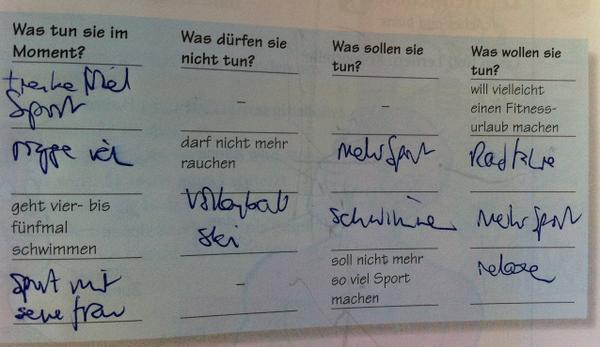 Was tun sie im
Moment?
Was dürfen sie
nicht tun?
Was sollen sie
tun?
Was wollen sie
tun?
Sport
–
–
will vielleicht
einen Fitness-
urlaub machen
darf nicht mehr
rauchen
mehr Sport
geht vier- bis
fünfmal
schwimmen
Volleyball
Ski
schwimme
mehr Sport
Sport mit
seine frau
–
soll nicht mehr
so viel Sport
machen
relaxe